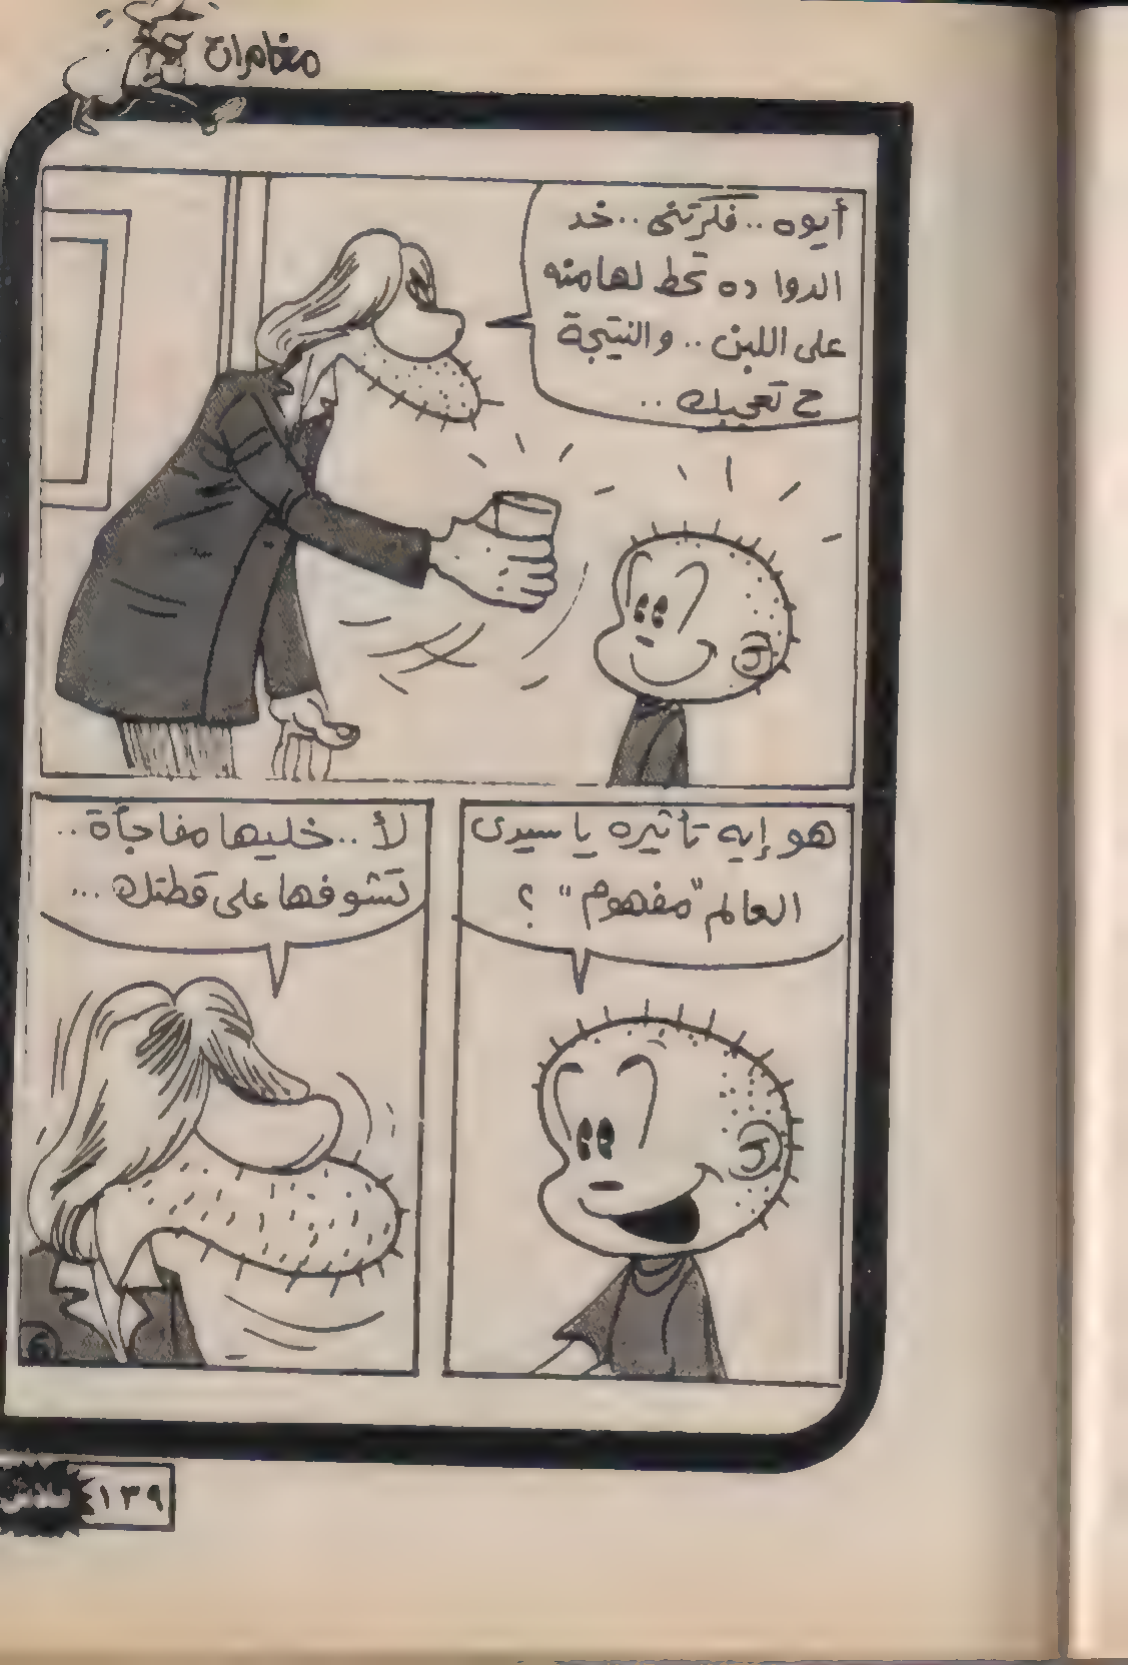 مغامرات
أيوه .. فكرتنى .. خد
الدوا ده تحط لها منه
على اللبن .. والنتيجة
ح تعجبك ..
هو إيه تأثيره يا سيدى
العالم "مفهوم" ؟
لأ .. خليها مفاجأة ..
تشوفها على قطتك ...
فلاش
١٣٩